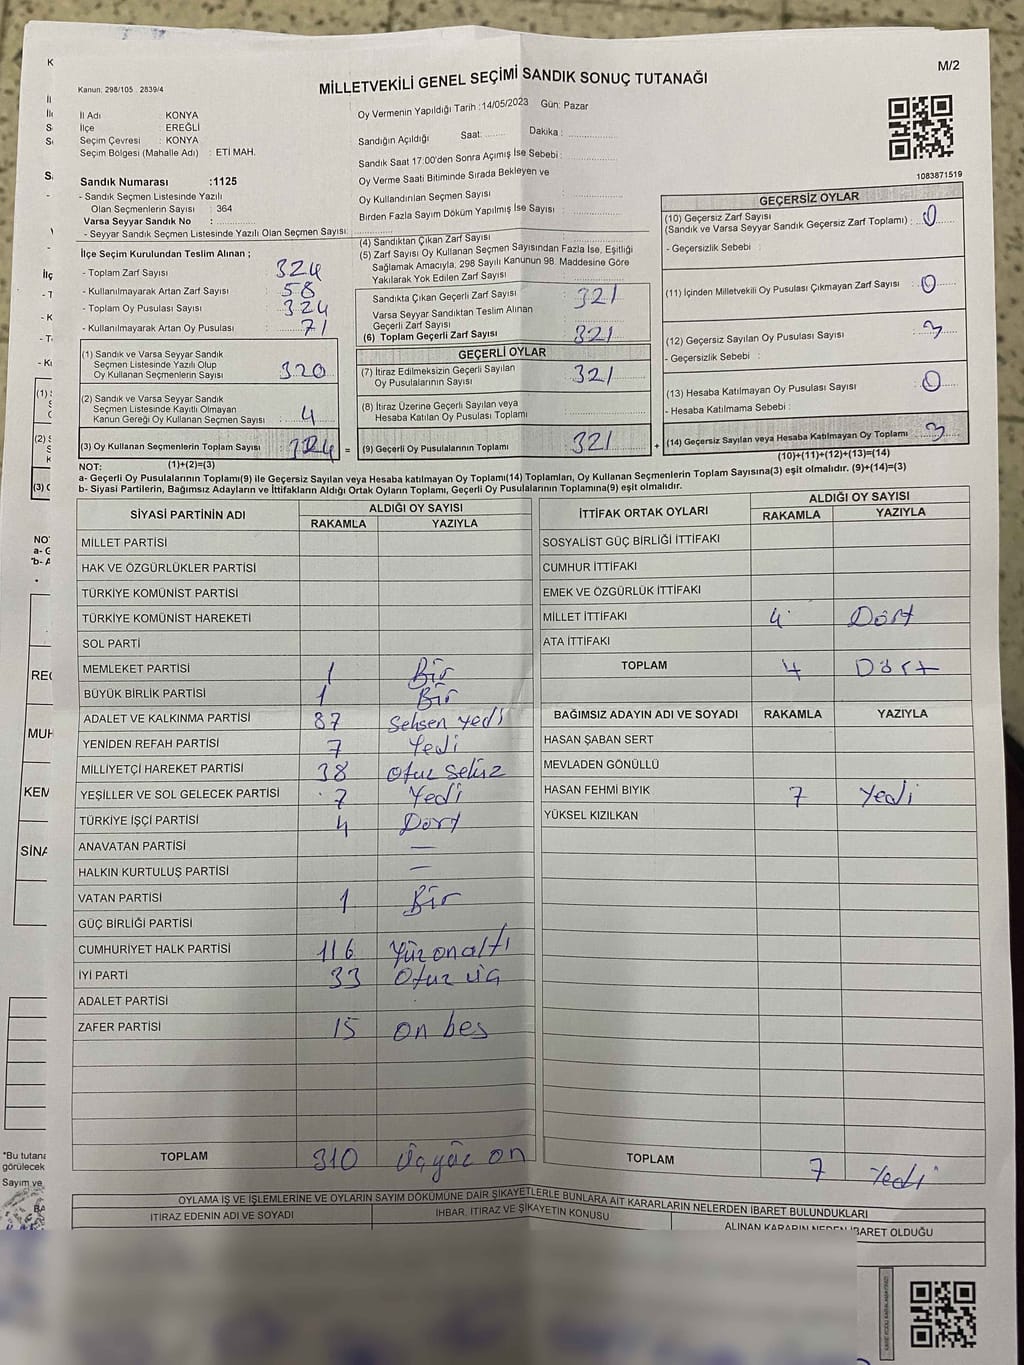 M/2
Kanun: 298/105 2839/4
MİLLETVEKİLİ GENEL SEÇİMİ SANDIK SONUÇ TUTANAĞI
İl Adı : KONYA
İlçe : EREĞLİ
Seçim Çevresi : KONYA
Seçim Bölgesi (Mahalle Adı) : ETİ MAH.
Sandık Numarası :1125
- Sandık Seçmen Listesinde Yazılı
Olan Seçmenlerin Sayısı : 364
Varsa Seyyar Sandık No :
- Seyyar Sandık Seçmen Listesinde Yazılı Olan Seçmen Sayısı:
Oy Vermenin Yapıldığı Tarih :14/05/2023 Gün: Pazar
Sandığın Açıldığı Saat: Dakika :
Sandık Saat 17:00'den Sonra Açımış İse Sebebi :
Oy Verme Saati Bitiminde Sırada Bekleyen ve
Oy Kullandırılan Seçmen Sayısı :
Birden Fazla Sayım Döküm Yapılmış İse Sayısı :
1083871519
İlçe Seçim Kurulundan Teslim Alınan ;
- Toplam Zarf Sayısı : 324
- Kullanılmayarak Artan Zarf Sayısı : 58
- Toplam Oy Pusulası Sayısı : 324
- Kullanılmayarak Artan Oy Pusulası : 71
(1) Sandık ve Varsa Seyyar Sandık
Seçmen Listesinde Yazılı Olup
Oy Kullanan Seçmenlerin Sayısı : 320
(2) Sandık ve Varsa Seyyar Sandık
Seçmen Listesinde Kayıtlı Olmayan
Kanun Gereği Oy Kullanan Seçmen Sayısı : 4
(3) Oy Kullanan Seçmenlerin Toplam Sayısı : 324 =
(4) Sandıktan Çıkan Zarf Sayısı :
(5) Zarf Sayısı Oy Kullanan Seçmen Sayısından Fazla İse, Eşitliği
Sağlamak Amacıyla, 298 Sayılı Kanunun 98. Maddesine Göre
Yakılarak Yok Edilen Zarf Sayısı :
Sandıkta Çıkan Geçerli Zarf Sayısı : 321
Varsa Seyyar Sandıktan Teslim Alınan
Geçerli Zarf Sayısı :
(6) Toplam Geçerli Zarf Sayısı : 321
GEÇERLİ OYLAR
(7) İtiraz Edilmeksizin Geçerli Sayılan
Oy Pusulalarının Sayısı : 321
(8) İtiraz Üzerine Geçerli Sayılan veya
Hesaba Katılan Oy Pusulası Toplamı :
(9) Geçerli Oy Pusulalarının Toplamı : 321 +
GEÇERSİZ OYLAR
(10) Geçersiz Zarf Sayısı
(Sandık ve Varsa Seyyar Sandık Geçersiz Zarf Toplamı) : 0
- Geçersizlik Sebebi :
(11) İçinden Milletvekili Oy Pusulası Çıkmayan Zarf Sayısı : 0
(12) Geçersiz Sayılan Oy Pusulası Sayısı : 3
- Geçersizlik Sebebi :
(13) Hesaba Katılmayan Oy Pusulası Sayısı : 0
- Hesaba Katılmama Sebebi :
(14) Geçersiz Sayılan veya Hesaba Katılmayan Oy Toplamı : 3
NOT: (1)+(2)=(3)
(10)+(11)+(12)+(13)=(14)
a- Geçerli Oy Pusulalarının Toplamı(9) ile Geçersiz Sayılan veya Hesaba katılmayan Oy Toplamı(14) Toplamları, Oy Kullanan Seçmenlerin Toplam Sayısına(3) eşit olmalıdır. (9)+(14)=(3)
b- Siyasi Partilerin, Bağımsız Adayların ve İttifakların Aldığı Ortak Oyların Toplamı, Geçerli Oy Pusulalarının Toplamına(9) eşit olmalıdır.
SİYASİ PARTİNİN ADI ALDIĞI OY SAYISI
RAKAMLA YAZIYLA
MİLLET PARTİSİ
HAK VE ÖZGÜRLÜKLER PARTİSİ
TÜRKİYE KOMÜNİST PARTİSİ
TÜRKİYE KOMÜNİST HAREKETİ
SOL PARTİ
MEMLEKET PARTİSİ 1 Bir
BÜYÜK BİRLİK PARTİSİ 1 Bir
ADALET VE KALKINMA PARTİSİ 87 Seksen yedi
YENİDEN REFAH PARTİSİ 7 Yedi
MİLLİYETÇİ HAREKET PARTİSİ 38 Otuz Sekiz
YEŞİLLER VE SOL GELECEK PARTİSİ 7 Yedi
TÜRKİYE İŞÇİ PARTİSİ 4 Dört
ANAVATAN PARTİSİ —
HALKIN KURTULUŞ PARTİSİ —
VATAN PARTİSİ 1 Bir
GÜÇ BİRLİĞİ PARTİSİ
CUMHURİYET HALK PARTİSİ 116 Yüz on altı
İYİ PARTİ 33 Otuz üç
ADALET PARTİSİ
ZAFER PARTİSİ 15 on beş
TOPLAM 310 üç yüz on
İTTİFAK ORTAK OYLARI ALDIĞI OY SAYISI
RAKAMLA YAZIYLA
SOSYALİST GÜÇ BİRLİĞİ İTTİFAKI
CUMHUR İTTİFAKI
EMEK VE ÖZGÜRLÜK İTTİFAKI
MİLLET İTTİFAKI 4 Dört
ATA İTTİFAKI
TOPLAM 4 Dört
BAĞIMSIZ ADAYIN ADI VE SOYADI RAKAMLA YAZIYLA
HASAN ŞABAN SERT
MEVLADEN GÖNÜLLÜ
HASAN FEHMİ BIYIK 7 Yedi
YÜKSEL KIZILKAN
TOPLAM 7 Yedi
OYLAMA İŞ VE İŞLEMLERİNE VE OYLARIN SAYIM DÖKÜMÜNE DAİR ŞİKAYETLERLE BUNLARA AİT KARARLARIN NELERDEN İBARET BULUNDUKLARI
İTİRAZ EDENİN ADI VE SOYADI İHBAR, İTİRAZ VE ŞİKAYETİN KONUSU ALINAN KARARIN NEDEN İBARET OLDUĞU
*Bu tutana
görülecek
Sayım ve